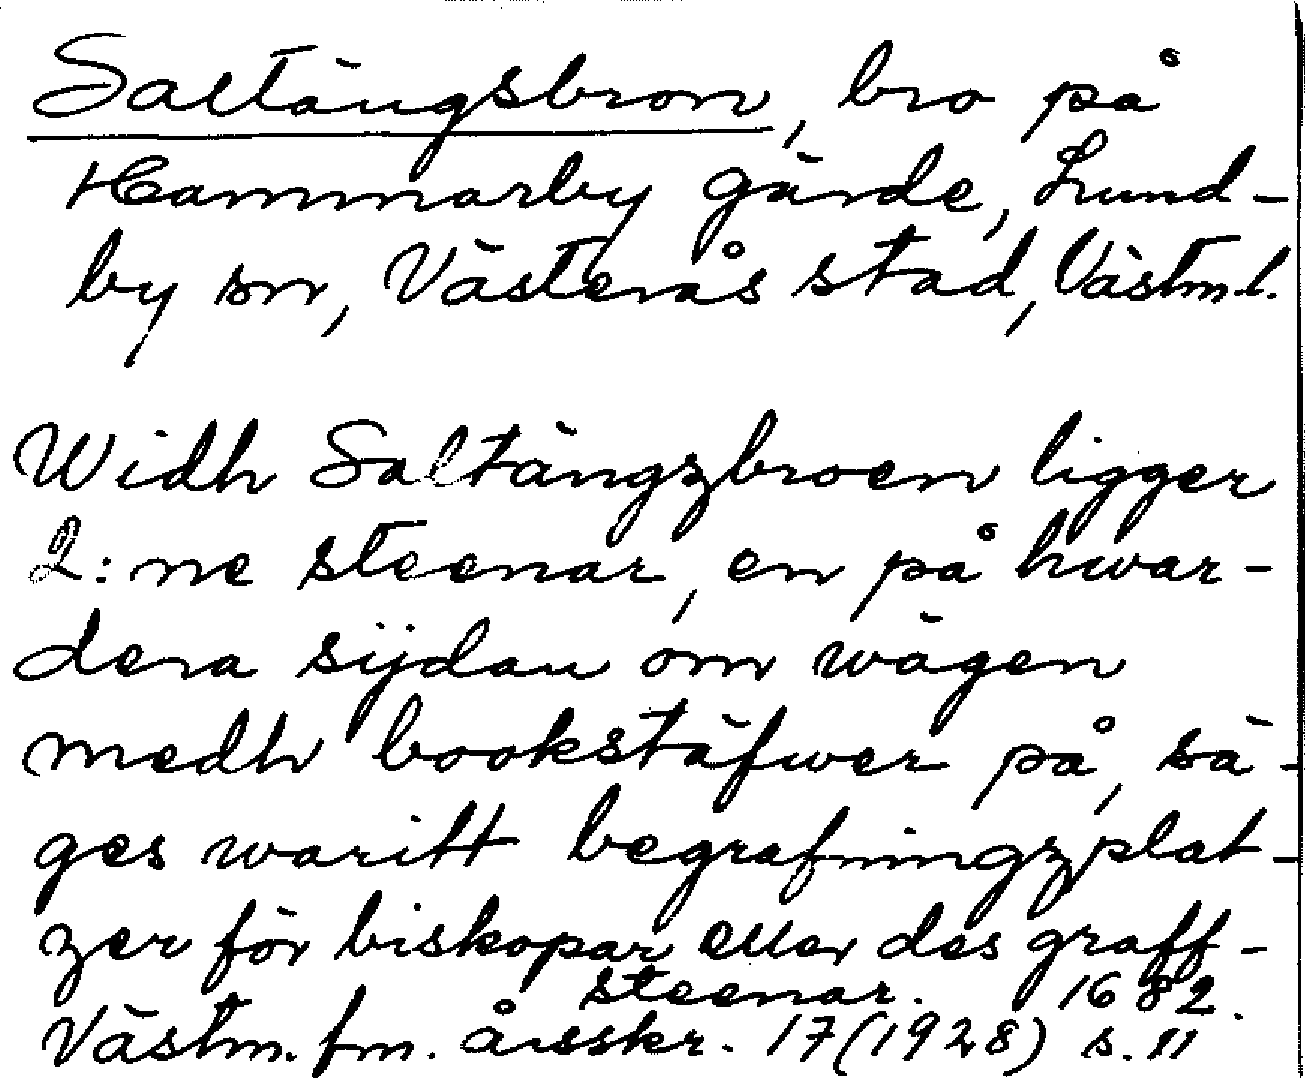 Saltängsbron, bro på
Hammarby gärde, Lund-
by sn, Västerås stad, Västm.l.
Widh Saltängzbroen ligger
2:ne steenar, en på hwar-
dera sijdan om wägen
medh bookstäfwer på, sä-
ges waritt begrafningzplat-
zer för biskopar eller des graff-
steenar. 1682.
Västm. fm. årsskr. 17 (1928) s. 11